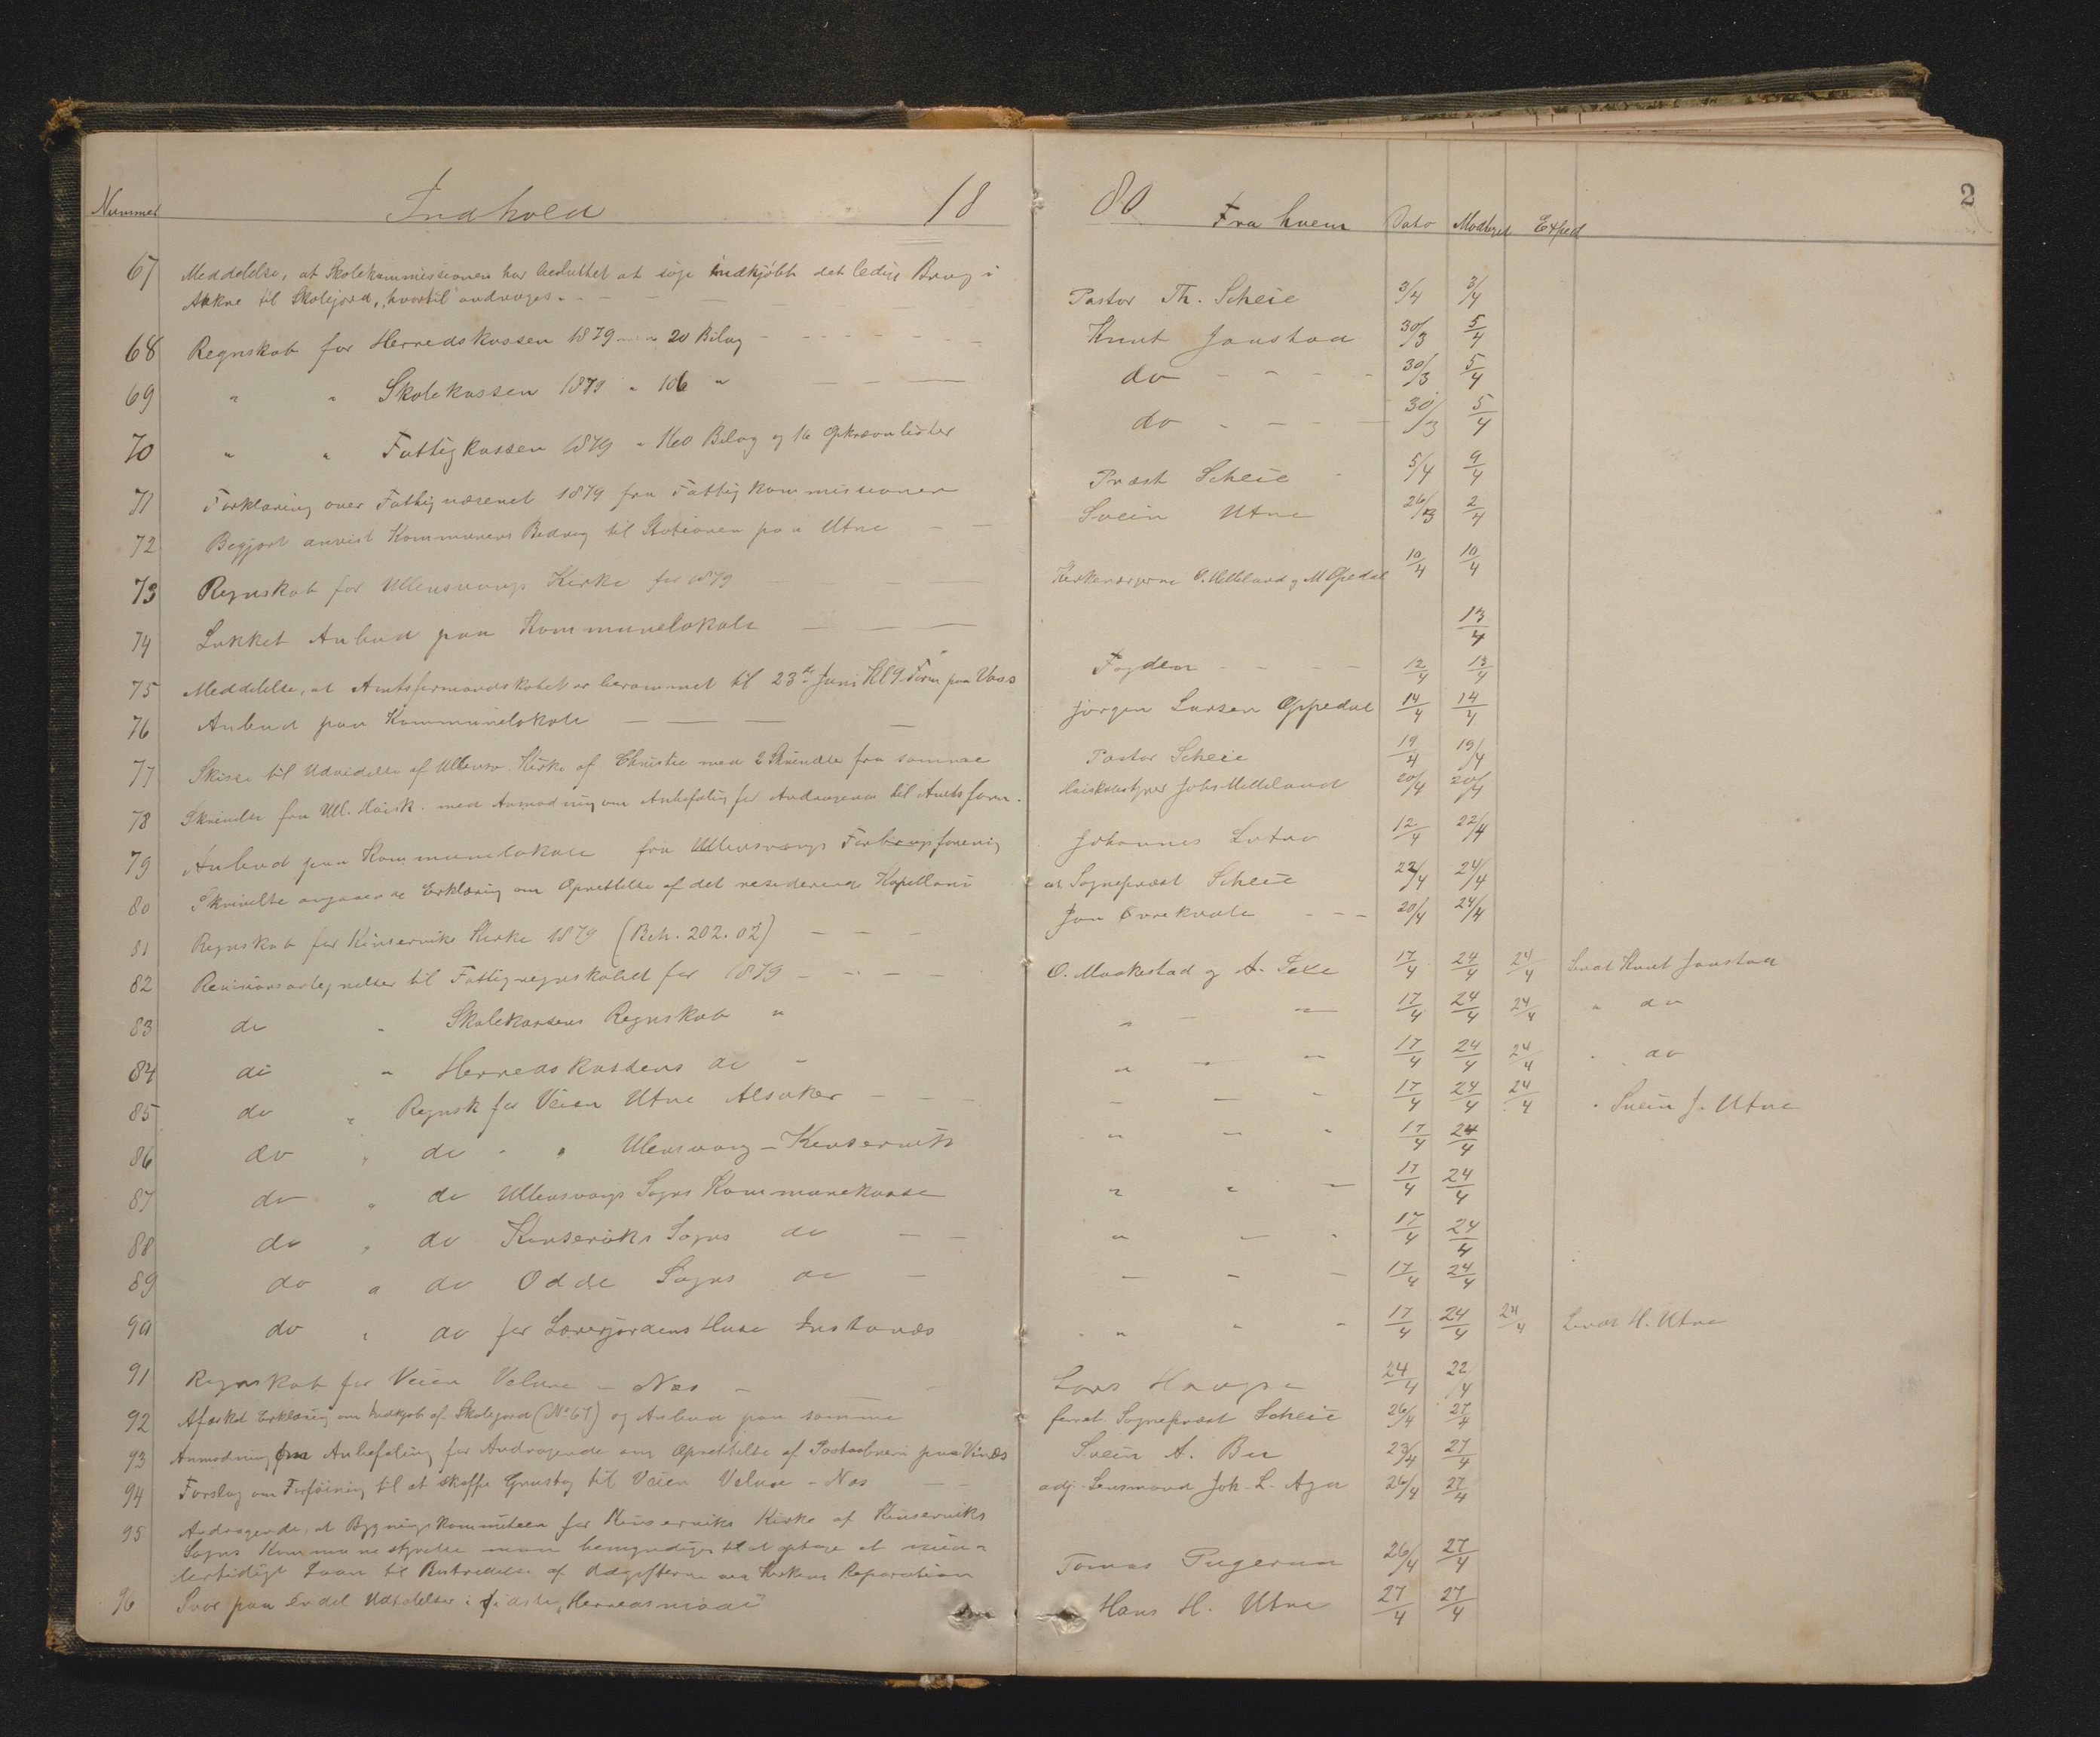 Nummer Indhold 18
67 Meddelelse, at Skolekommissionen har besluttet at søge indkjøbt det ledige Brug i
Aakre til Skolejord, hvortil andrages
68 Regnskab for Herredskassen 1879 20 Bilag
69 " " Skolekassen 1879 " 106 "
70 " " Fattigkassen 1879 " 160 Bilag og 16 Opkrævnlister
71 Forklaring over Fattigvæsenet 1879 fra Fattigkommissionen
72 Begjært anvist Kommunens Bidrag til Stationen paa Utne
73 Regnskab for Ullensvangs Kirke for 1879
74 Lukket Anbud paa Kommunelokale
75 Meddelelse, at Amtsformandskabet er berammet til 23de Juni Kl 9 Form paa Voss
76 Anbud paa Kommunelokale
77 Skisse til Udvidelse af Ullensv. Kirke af Christie med 2 Skrivelse fra samme
78 Skrivelse fra Ull. med Anmodning om Anbefaling for Andragende til Amtsform.
79 Anbud paa Kommunelokale fra Ullensvangs Forbrugsforening
80 Skrivelse angaaende Erklæring om Oprettelse af det residerende Kapellani
81 Regnskab for Kinserviks Kirke 1879 (Beh. 202.02)
82 Revisionsantegnelser til Fattigregnskabet for 1879
83 do " Skolekassens Regnskab "
84 do " Herredskassens do "
85 do " Regnsk for Veien Utne Alsaker
86 do " do " " Ullensvang - Kinservik
87 do " do Ullensvangs Sogns Kommunekasse
88 do " do Kinserviks Sogns do
89 do " do Odde Sogns do
90 do " do for Lærerjordens Huse
91 Regnskab for Veien Velure - Næs
92 Afæsket Erklæring om Indkjøb af Skolejord (No 67) og Anbud paa samme
93 Anmodning om Anbefaling for Andragende om Oprettelse af Postaabneri paa Vines
94 Forslag om Forføining til at skaffe Grustag til Veien Velure - Næs
95 Andragende, at Bygningskommiteen for Kinserviks Kirke af Kinserviks
Sogns Kommunestyrelse maa bemyndiges til at optage et mid-
lertidigt Laan til Bestridelse af Udgifterne ved Kirkens Reparation
96 Svar paa Endel Udtalelser i sidste "Herredsmøde"
80 Fra hvem Dato Modtaget Exped 2
Pastor Th. Scheie 3/4 3/4
Knut Jaastad 30/3 5/4
do 30/3 5/4
do 30/3 5/4
Præst Scheie 5/4 9/4
Svein Utne 26/3 2/4
Kirkeværgerne O. Helleland og M Opedal 10/4 10/4
13/4
Fogden 12/4 13/4
Jørgen Larsen Oppedal 14/4 14/4
Pastor Scheie 19/4 19/4
Johs Helleland 20/4 20/4
Johannes Lutro 12/4 22/4
Sognepræst Scheie 22/4 24/4
Jon 20/4 24/4
O. Maakestad og A. 17/4 24/4 24/4 Knut Jaastad
" " 17/4 24/4 24/4 " do
" " 17/4 24/4 24/4 " do
" " 17/4 24/4 24/4 " Svein J. Utne
" " 17/4 24/4
" " 17/4 24/4
" " 17/4 24/4
" " 17/4 24/4
" " 17/4 24/4 24/4 H. Utne
Lars 24/4 22/4
Sognepræst Scheie 26/4 27/4
Svein A. Bu 23/4 27/4
adj. Lensmand Joh. L. Aga 26/4 27/4
Tomas 26/4 27/4
Hans H. Utne 27/4 27/4